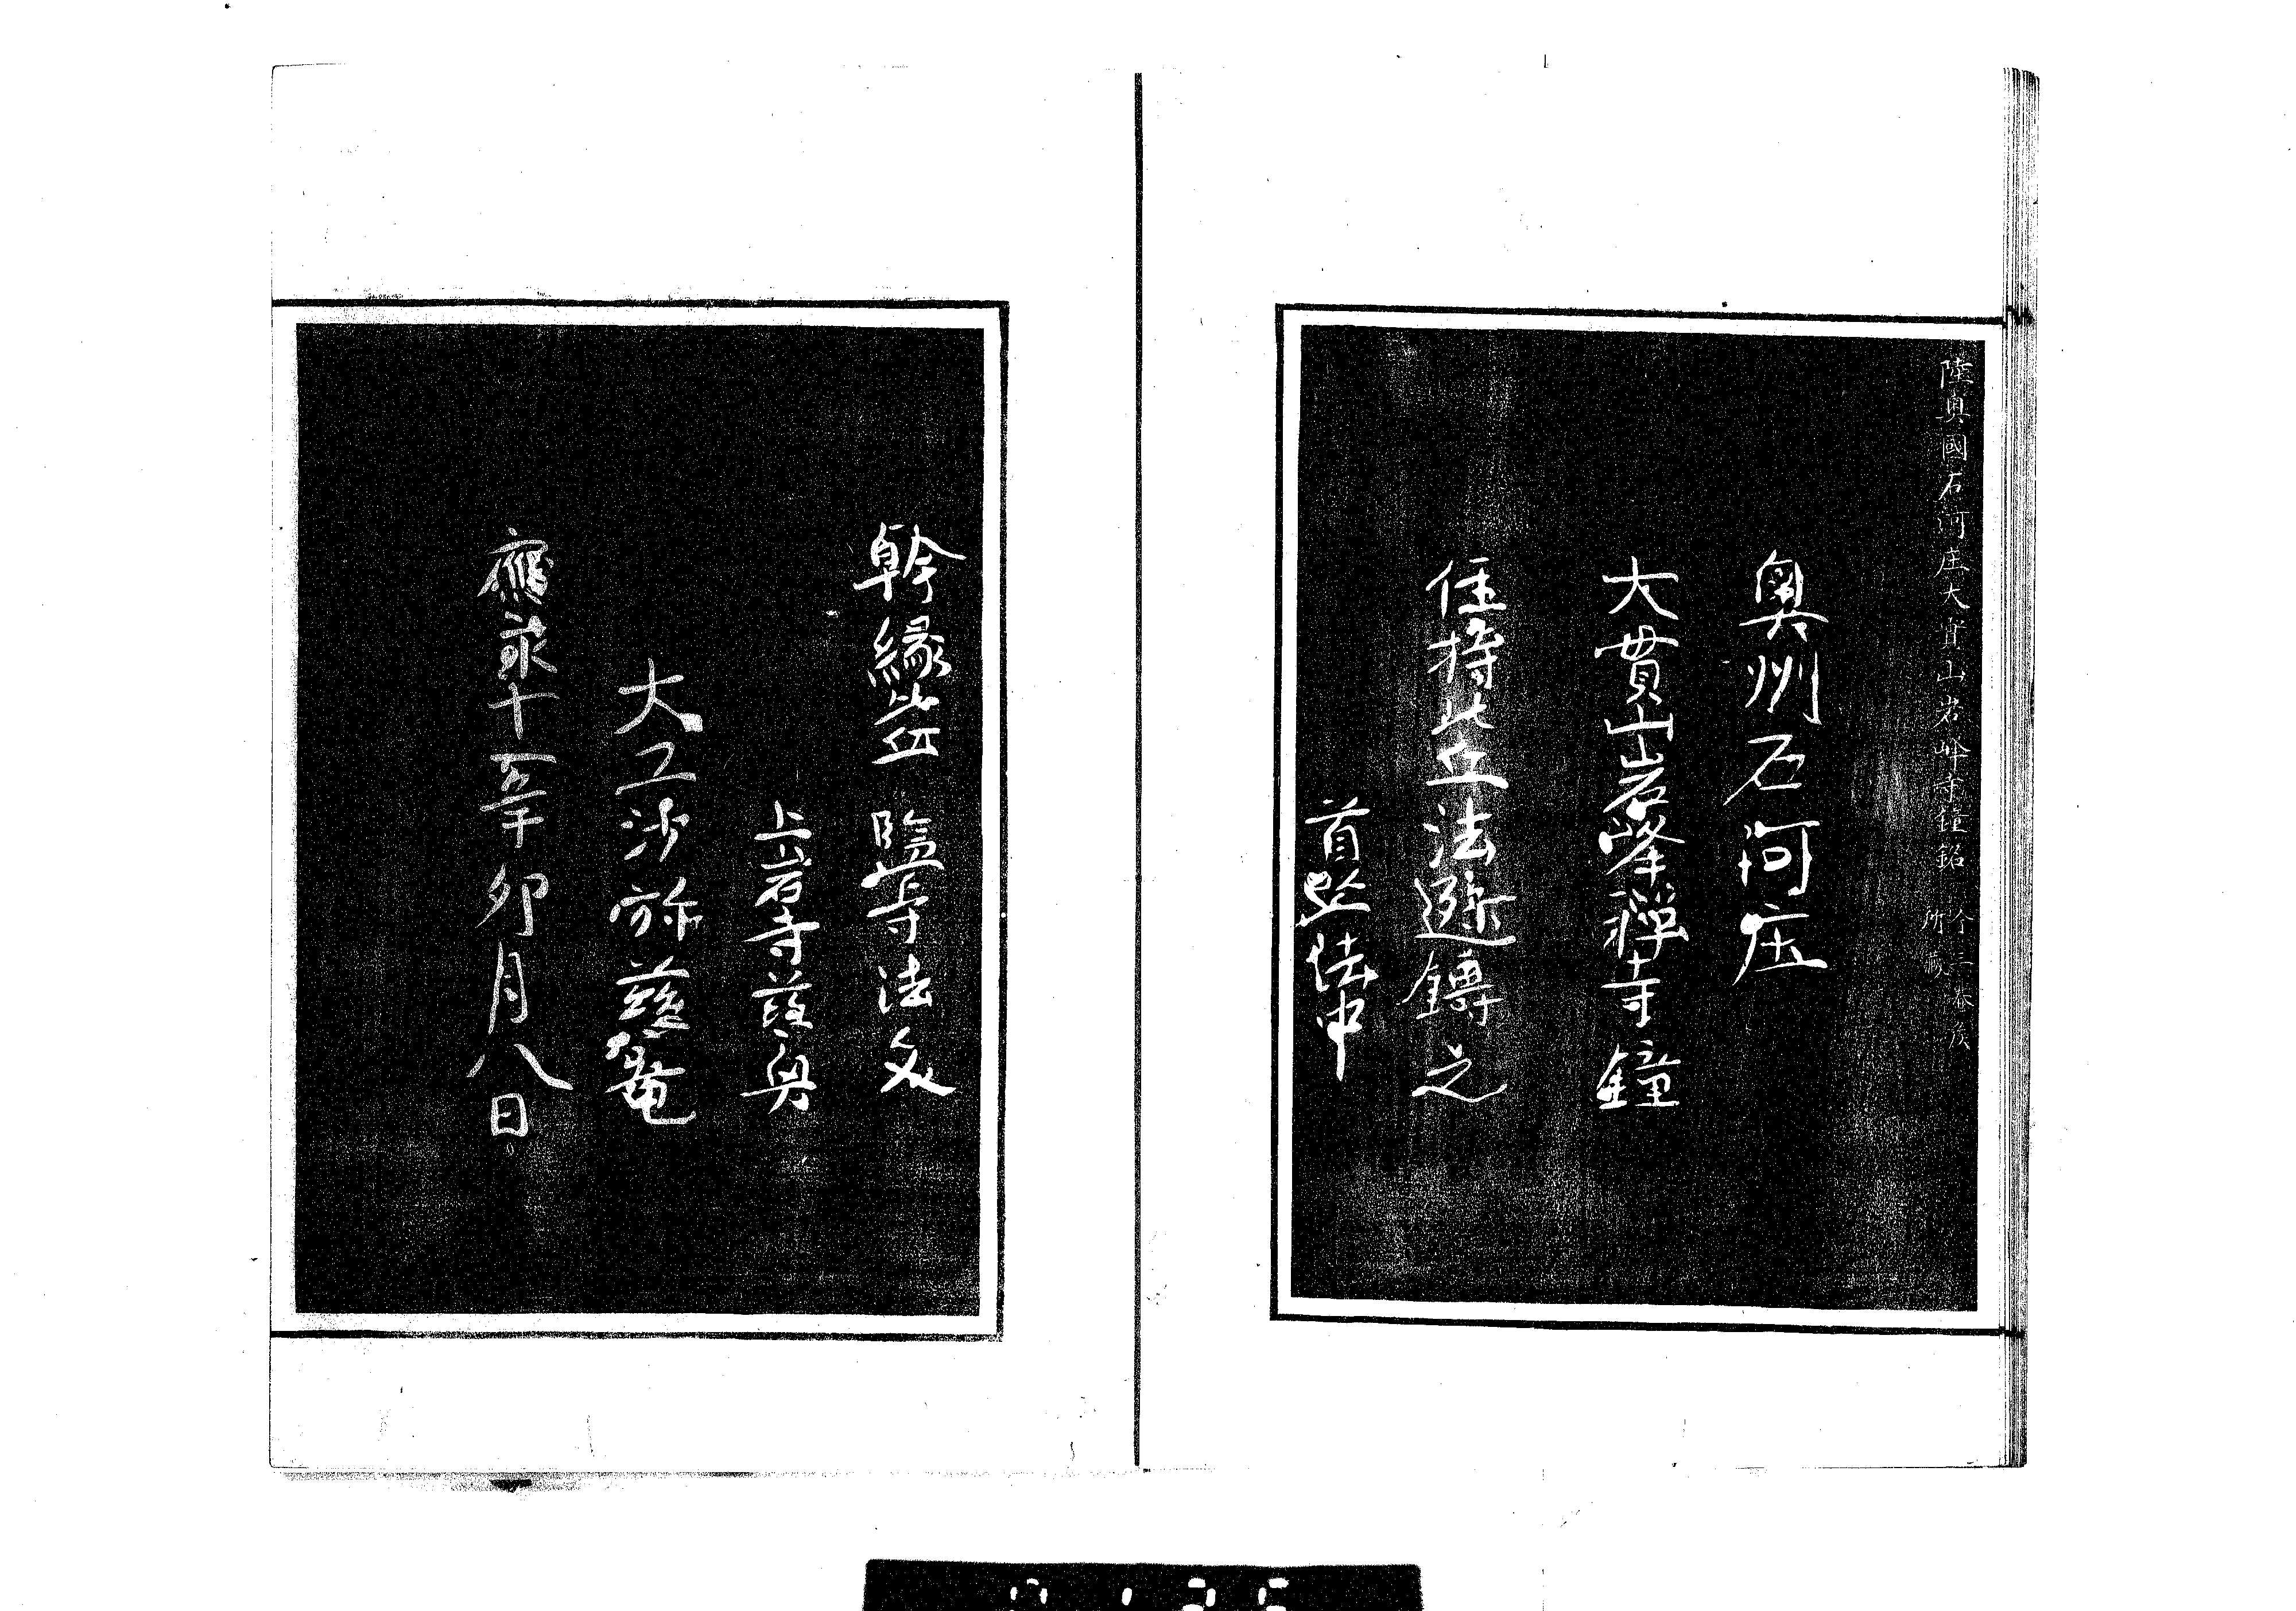 陸奥國石河庄大貫山岩峰寺鐘銘 今三春侯
所蔵
奥州石河庄
大貫山岩峰禅寺鐘
住持比丘法遜鑄之
首座法中
幹縁比丘 監寺法久
上岩寺
大工沙弥慈菴
應永十八辛卯月八日